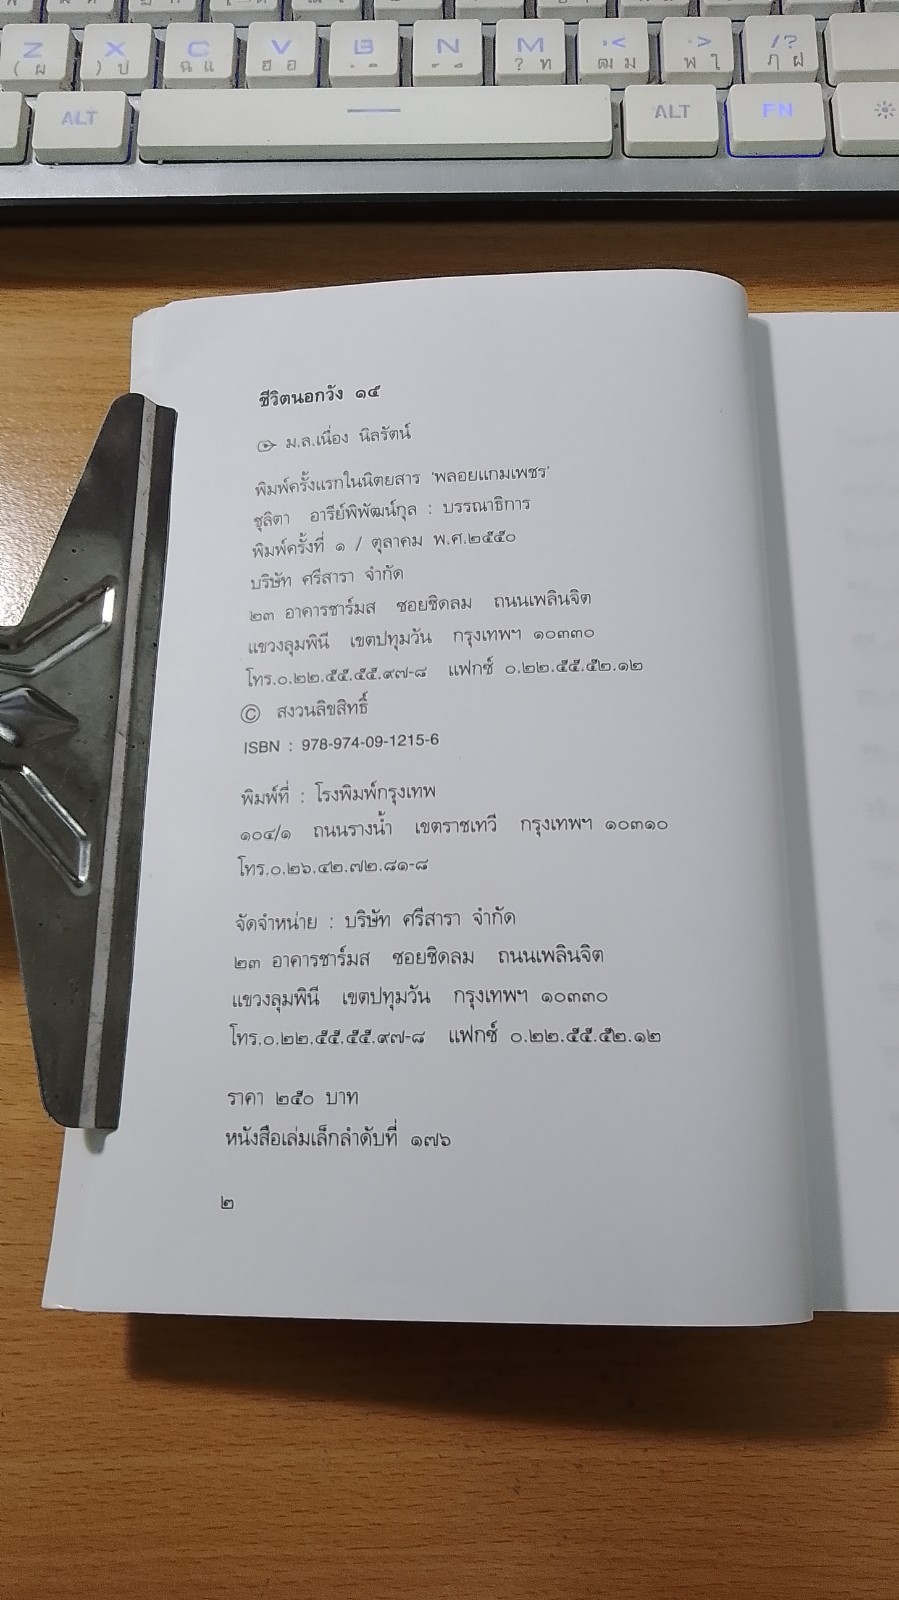 Z
( ผ
X
) ป
C
ฉ แ
V
ฮ อ
B
N
M
? ท
,<
ฒ ม
.>
ฬ ใ
/?
ฦ ฝ
ALT
ALT
FN
ชีวิตนอกวัง ๑๕
ม.ล.เนื่อง นิลรัตน์
พิมพ์ครั้งแรกในนิตยสาร 'พลอยแกมเพชร'
ชุลิตา อารีย์พิพัฒน์กุล : บรรณาธิการ
พิมพ์ครั้งที่ ๑ / ตุลาคม พ.ศ.๒๕๕๐
บริษัท ศรีสารา จำกัด
๒๓ อาคารชาร์มส ซอยชิดลม ถนนเพลินจิต
แขวงลุมพินี เขตปทุมวัน กรุงเทพฯ ๑๐๓๓๐
โทร.๐.๒๒.๕๕.๕๕.๙๗-๘ แฟกซ์ ๐.๒๒.๕๕.๕๒.๑๒
© สงวนลิขสิทธิ์
ISBN : 978-974-09-1215-6
พิมพ์ที่ : โรงพิมพ์กรุงเทพ
๑๐๔/๑ ถนนรางน้ำ เขตราชเทวี กรุงเทพฯ ๑๐๓๑๐
โทร.๐.๒๖.๔๒.๗๒.๘๑-๘
จัดจำหน่าย : บริษัท ศรีสารา จำกัด
๒๓ อาคารชาร์มส ซอยชิดลม ถนนเพลินจิต
แขวงลุมพินี เขตปทุมวัน กรุงเทพฯ ๑๐๓๓๐
โทร.๐.๒๒.๕๕.๕๕.๙๗-๘ แฟกซ์ ๐.๒๒.๕๕.๕๒.๑๒
ราคา ๒๕๐ บาท
หนังสือเล่มเล็กลำดับที่ ๑๗๖
๒